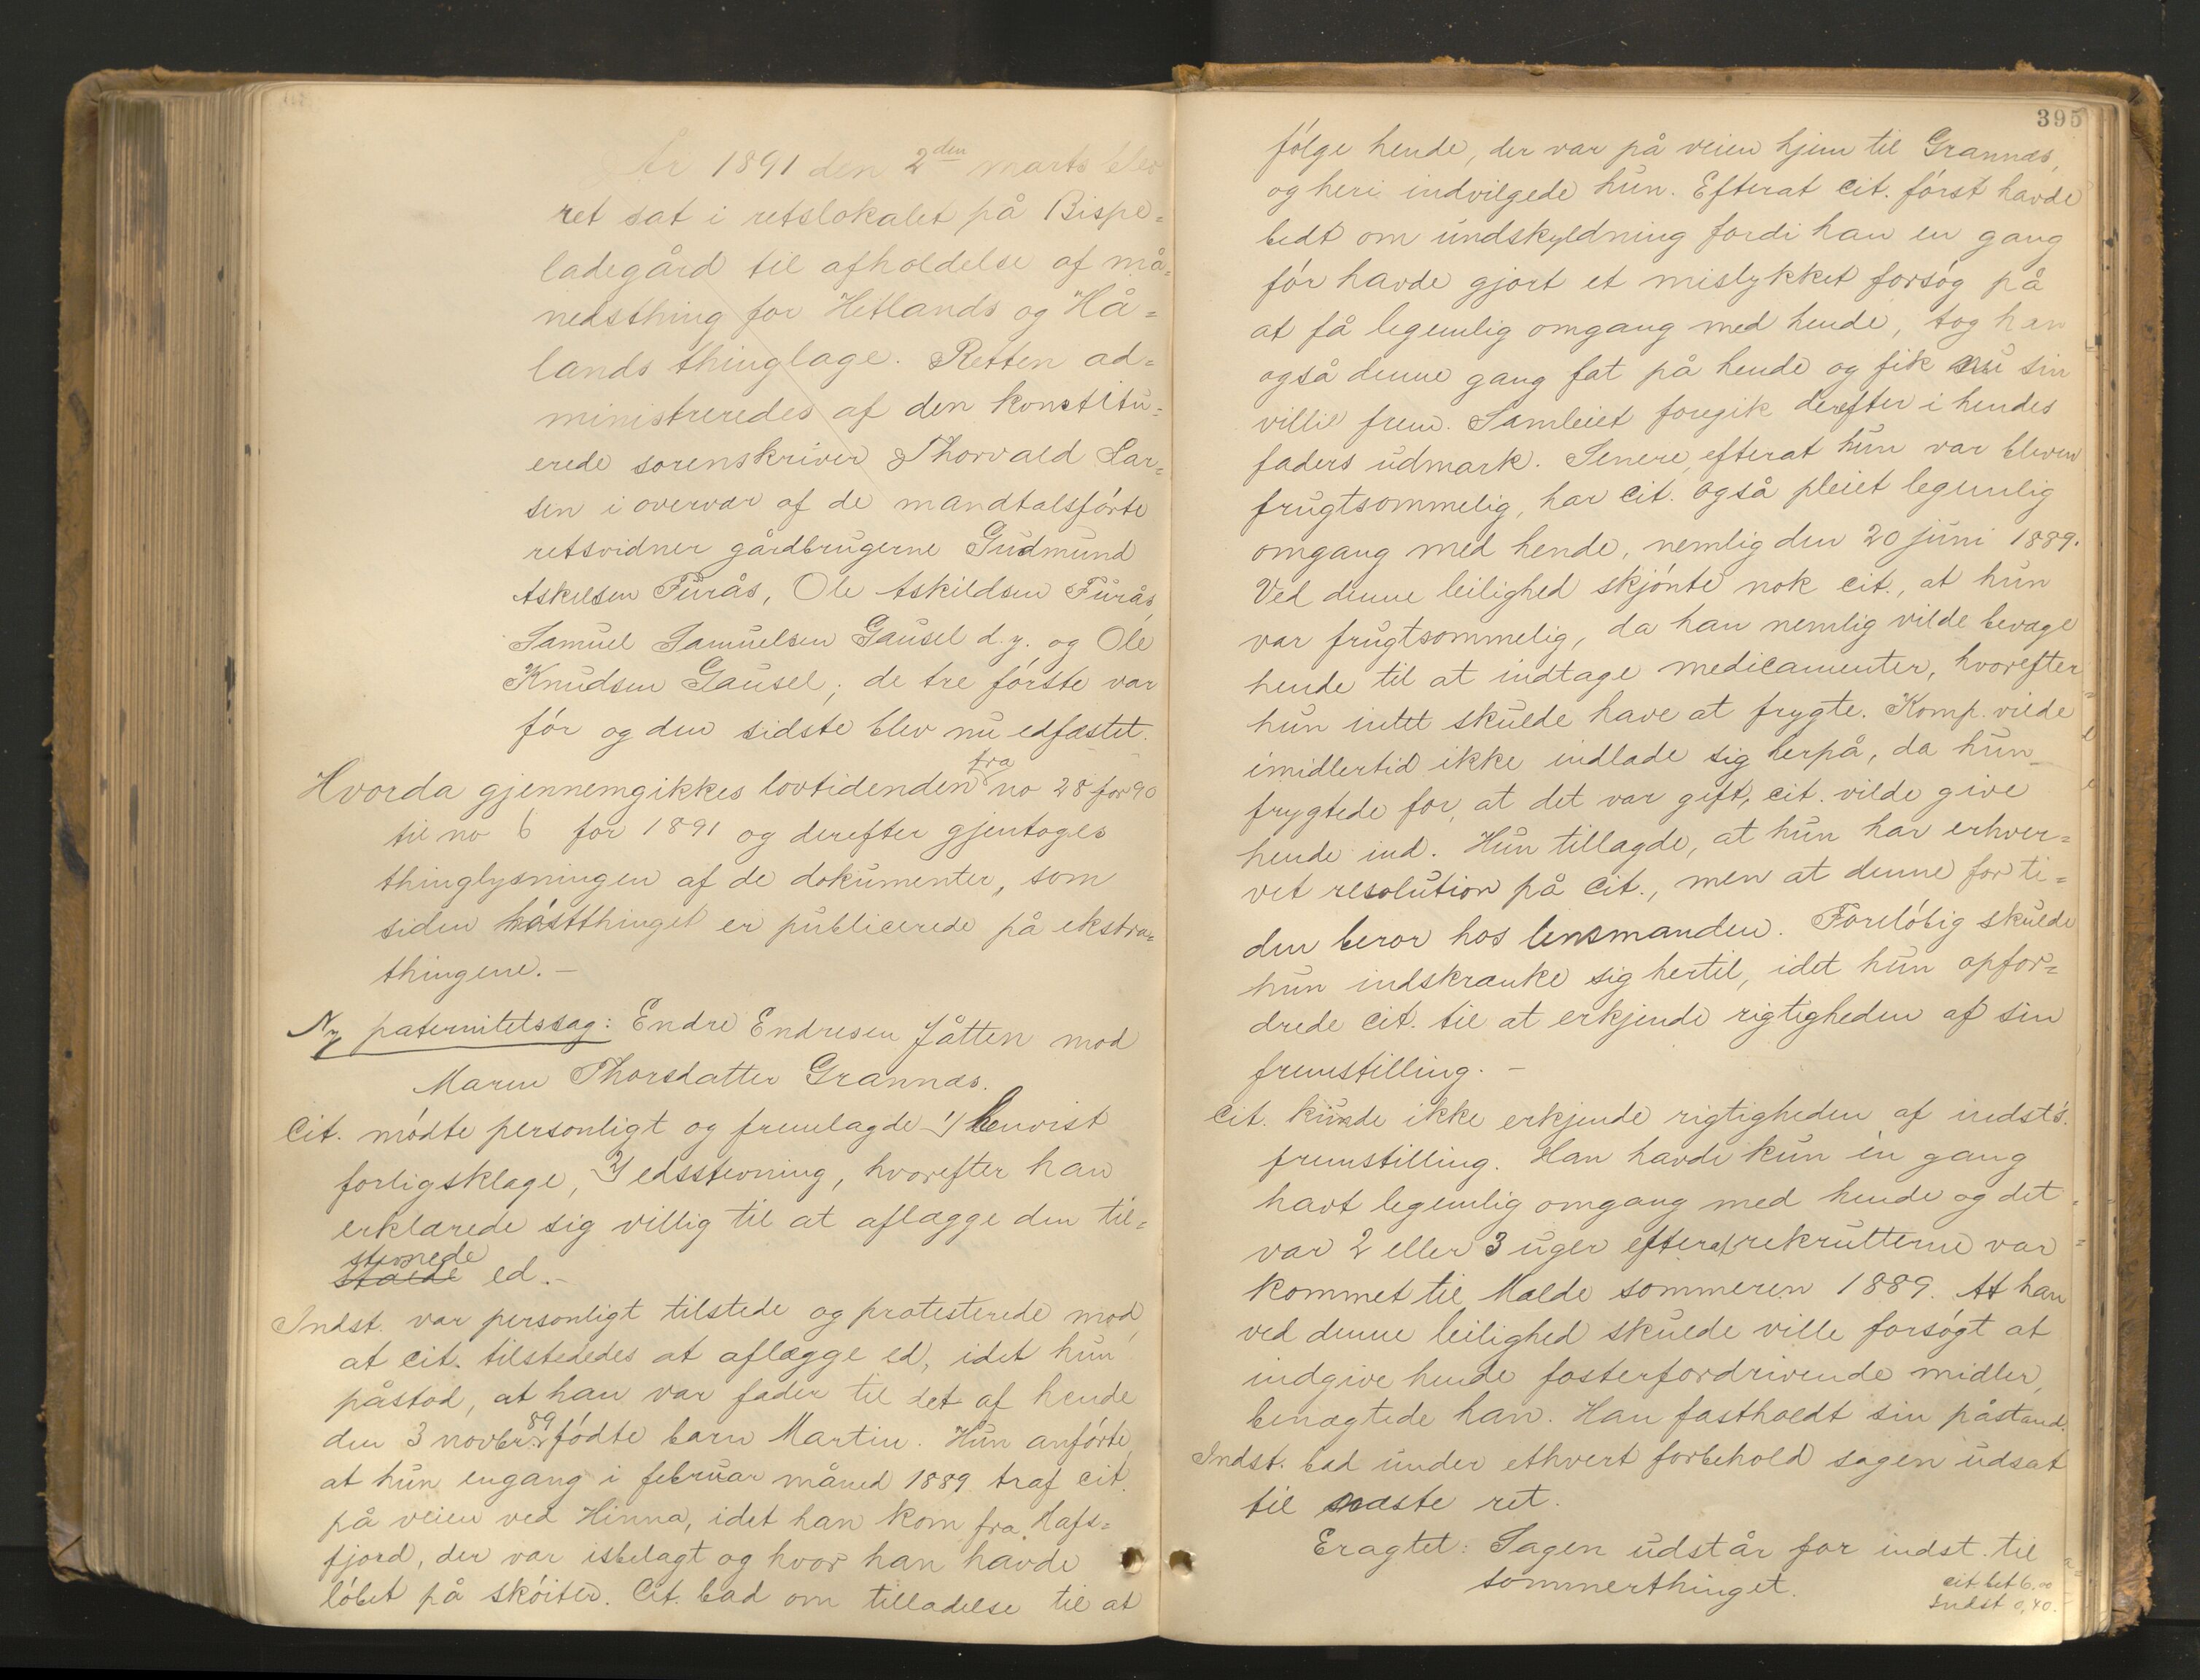 År 1891 den 2den marts blev
ret sat i retslokalet på Bispe=
ladegård til afholdelse af må=
nedsthing for Hetlands og Hå=
lands thinglage. Retten ad=
ministreredes af den konstitu=
erede sorenskriver Thorvald Lar=
sen i overvær af de mandtalsførte
retsvidner gårdbrugerne Gudmund
Askilsen Furås, Ole Askildsen Furås,
Samuel Samuelsen Gausel d.y. og Ole
Knudsen Gausel; de tre første var
før og den sidste blev nu edfæstet.
Hvorda gjennemgikkes lovtidenden fra no 28 for 90
til no 6 for 1891 og derefter gjentoges
thinglysningen af de dokumenter, som
siden høstthinget er publicerede på ekstra=
thingene. –
Ny paternitetssag: Endre Endresen Jåtten mod
Maren Thorsdatter Grannæs.
Cit. mødte personligt og fremlagde 1/ henvist
forligsklage, 2/ edsstevning, hvorefter han
erklærede sig villig til at aflægge den til=
stevnede
ed. –
Indst. var personligt tilstede og protesterede mod,
at cit. tilstededes at aflægge ed, idet hun
påstod, at han var fader til det af hende
den 3 novbr. 89 fødte barn Martin. Hun anførte,
at hun engang i februar måned 1889 traf cit.
på veien ved Hinna, idet han kom fra Hafs=
fjord, der var isbelagt og hvor han havde
løbet på skøiter. Cit. bad om tilladelse til at
395
følge hende, der var på veien hjem til Grannæs,
og heri indvilgede hun. Efterat cit. først havde
bedt om undskyldning fordi han en gang
før havde gjort et mislykket forsøg på
at få legemlig omgang med hende, tog han
også denne gang fat på hende og fik nu sin
villie frem. Samleiet foregik derefter i hendes
faders udmark. Senere, efterat hun var bleven
frugtsommelig, har cit. også pleiet legemlig
omgang med hende, nemlig den 20 juni 1889.
Ved denne leilighed skjønte nok cit., at hun
var frugtsommelig, da han nemlig vilde bevæge
hende til at indtage medicamenter, hvorefter
hun intet skulde have at frygte. Komp. vilde
imidlertid ikke indlade sig herpå, da hun
frygtede for, at det var gift, cit. vilde give
hende ind. Hun tillagde, at hun har erhver=
vet resolution på cit., men at denne for ti=
den beror hos lensmanden. Foreløbig skulde
hun indskrænke sig hertil, idet hun opfor=
drede cit. til at erkjende rigtigheden af sin
fremstilling. –
Cit. kunde ikke erkjende rigtigheden af indst's.
fremstilling. Han havde kun én gang
havt legemlig omgang med hende og det
var 2 eller 3 uger efterat rekrutterne var
kommet til Malde sommeren 1889. At han
ved denne leilighed skulde ville forsøgt at
indgive hende fosterfordrivende midler,
benægtede han. Han fastholdt sin påstand.
Indst. bad under ethvert forbehold sagen udsat
til næste ret.
Eragtet: Sagen udstår for indst. til
sommerthinget.
cit. bet 6,00
Indst 0,40.